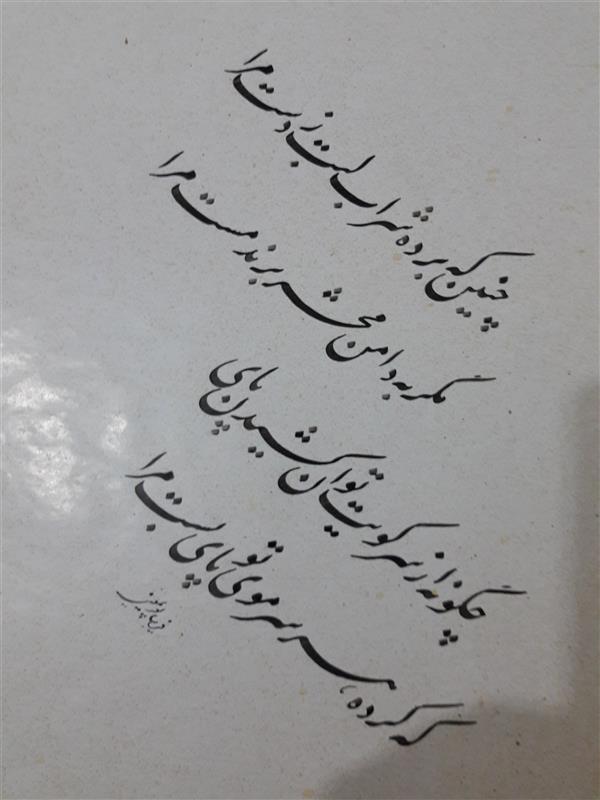 چنین که برده شراب لبت ز دست مرا
مگر به دامن محشر برند مست مرا
چگونه از سر کویت توان کشیدن پای
که کرده هر سر موی تو پای بست مرا